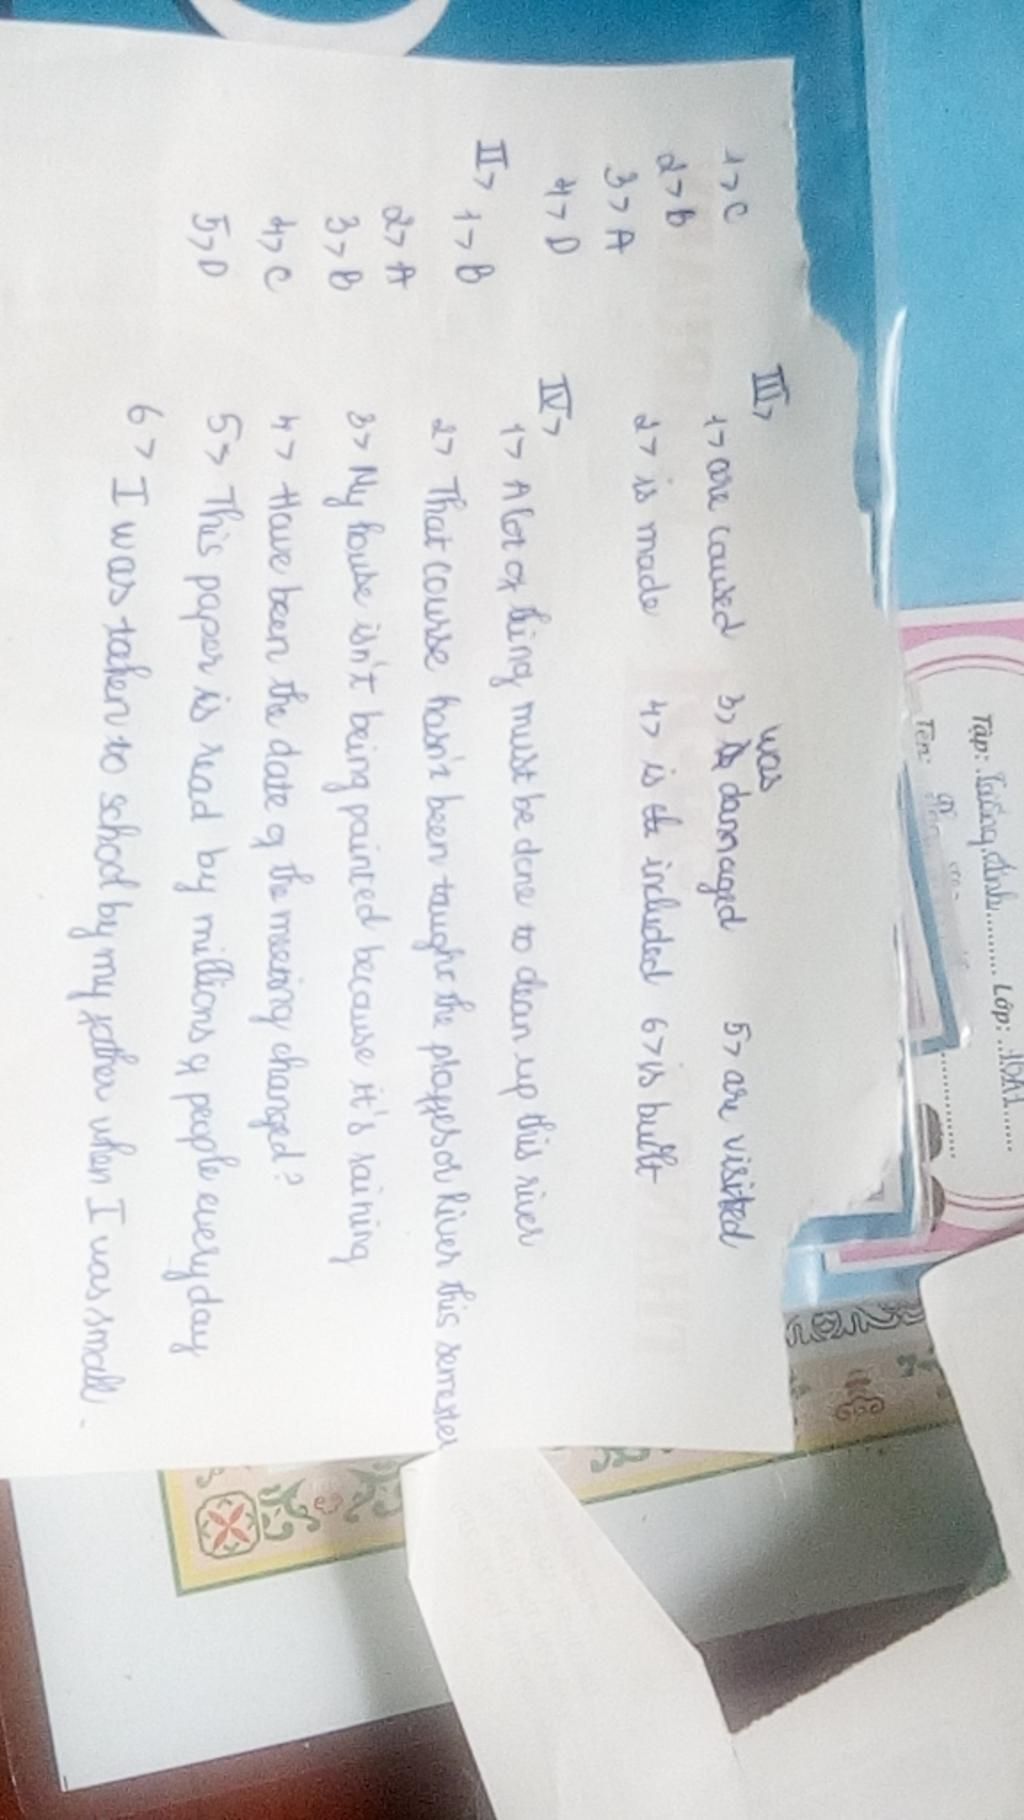 1> C
2> B
3> A
4> D
II> 1> B
2> A
3> B
4> C
5> D
III>
1> are caused 3> was damaged 5> are visited
2> is made 4> is included 6> is built
IV>
1> A lot of thing must be done to clean up this river
2> That course hasn't been taught the professor River this semester
3> My house isn't being painted because it's raining
4> Have been the date of the meeting changed?
5> This paper is read by millions of people everyday
6> I was taken to school by my father when I was small.
Tập: Tiếng Anh Lớp: 10A1
Tên: